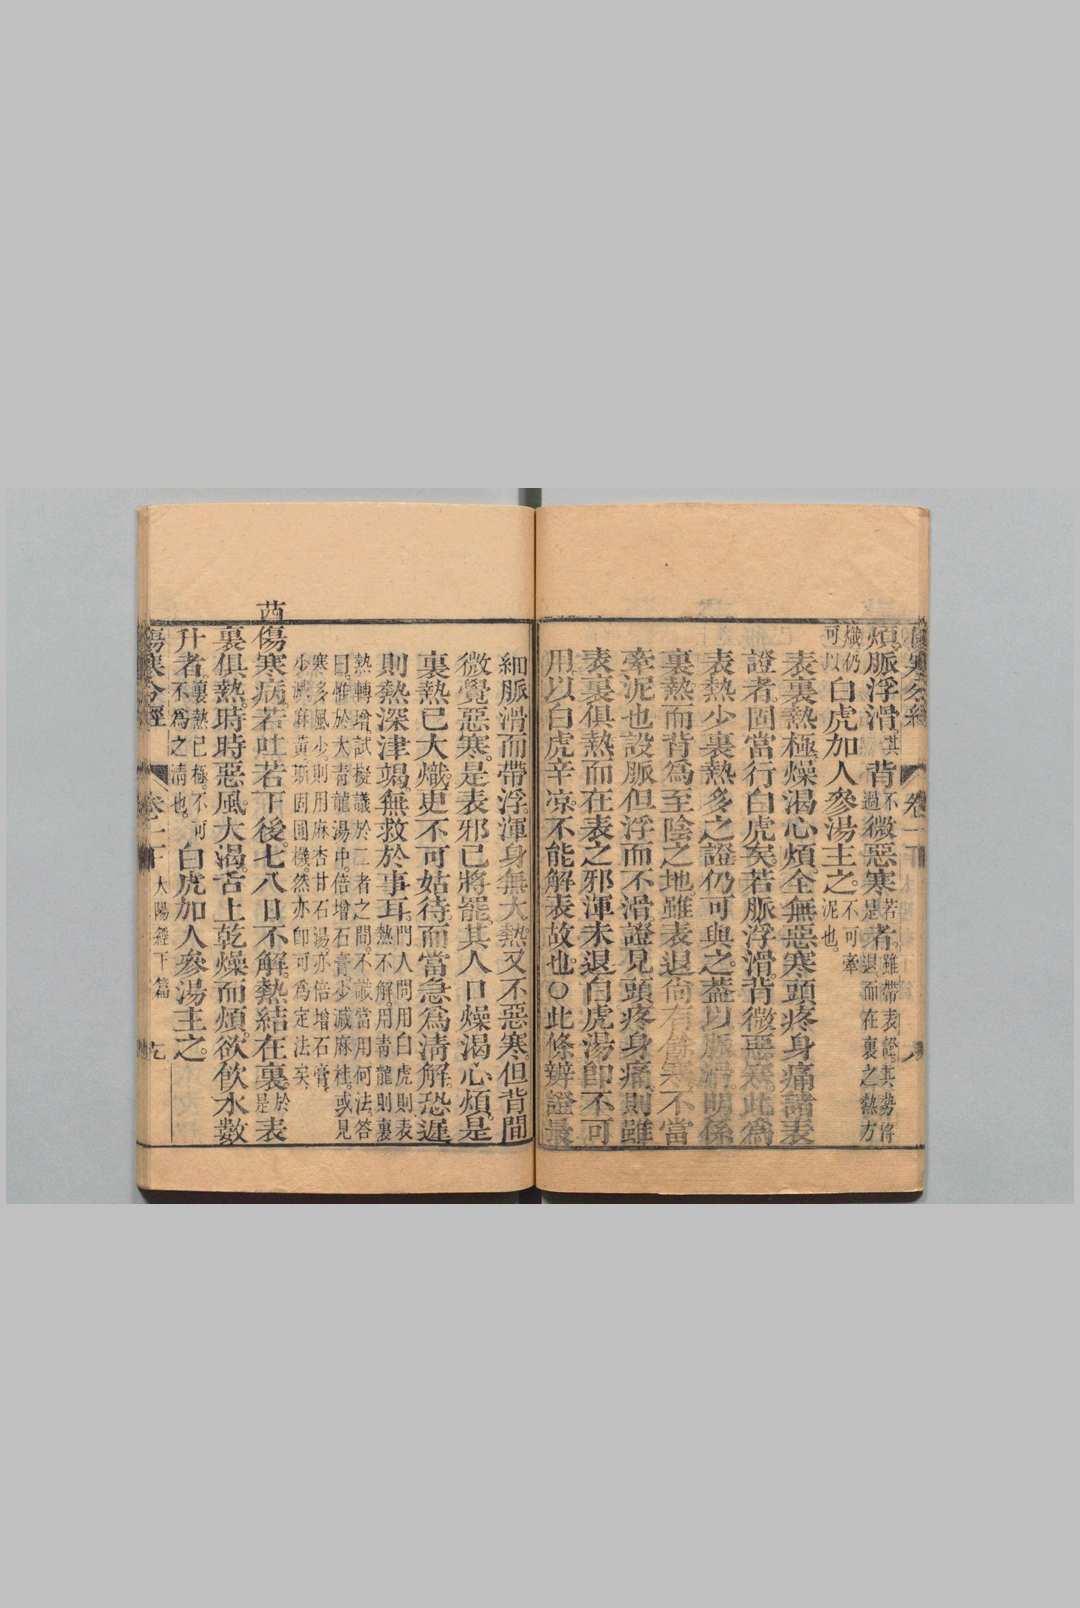 煩。脈浮滑。其背不過微惡寒是者。若雖帶表證。其勢將退。而在裏之熱方
熾。仍可以白虎加人參湯主之。不可牽泥也。
表裏熱極。燥渴心煩。全無惡寒頭疼身痛諸表
證者。固當行白虎矣。若脈浮滑。背微惡寒。此爲
表熱少裏熱多之證。仍可與之。蓋以脈滑明係
裏熱。而背爲至陰之地。雖表退尙有餘寒。不當
牽泥也。設脈但浮而不滑。證見頭疼身痛。則雖
表裏俱熱。而在表之邪渾未退。白虎湯卽不可
用。以白虎辛凉。不能解表故也。○此條辨證最
細。脈滑而帶浮。渾身無大熱。又不惡寒。但背間
微覺惡寒。是表邪已將罷。其人口燥渴心煩。是
裏熱已大熾。更不可姑待。而當急爲淸解。恐遲
則熱深津竭。無救於事耳。門人問。用白虎則表熱不解。用青龍則裏
熱轉增。試擬議於二者之間。不識當用何法。答曰。惟於大青龍湯中。倍增石膏。少減麻桂。或見
寒多風少。則用麻杏甘石湯。亦倍增石膏。少減麻黃。斯固圓機。然亦卽可爲定法矣。
傷寒病。若吐若下後。七八日不解。熱結在裏。於是表
裏俱熱。時時惡風。大渴。舌上乾燥而煩。欲飮水數
升者。裏熱已極。不可不爲之清也。白虎加人參湯主之。
傷寒分經 卷一下 太陽經下篇 九